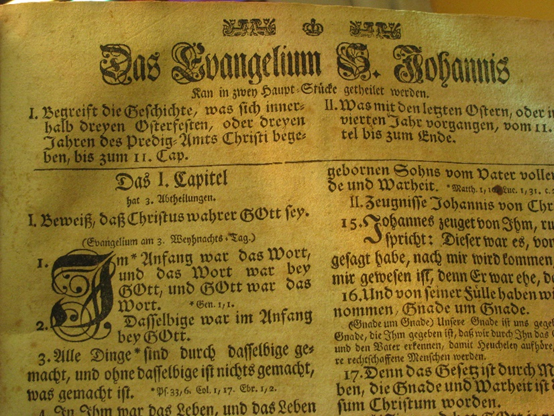 Das Evangelium S. Johannis
Kan in zwey Haupt-Stücke getheilet werden.
I. Begreift die Geschichte, was sich inner-
halb dreyen Osterfesten, oder dreyen
Jahren des Predig-Amts Christi bege-
ben, bis zum 11. Cap.
II. Was mit den letzten Ostern, oder im
vierten Jahr vorgangen, vom 11.
tel bis zum Ende.
Das I. Capitel
hat 3. Abtheilungen.
I. Beweiß, daß Christus wahrer GOtt sey.
(Evangelium am 3. Weyhnachts-Tag.)
1. Im* Anfang war das Wort,
und das Wort war bey
GOtt, und GOtt war das
Wort. *Gen. 1, 1.
2. Dasselbige war im Anfang
bey GOtt.
3. Alle Dinge* sind durch dasselbige ge-
macht, und ohne dasselbige ist nichts gemacht,
was gemacht ist. *Ps. 33, 6. Col. 1, 17. Ebr. 1, 2.
4. In Ihm war das Leben, und das Leben
gebornen Sohns vom Vater voller
de und Warheit. *Matth. 1, Luc. 1, 31. c.
II. Zeugnisse Johannis von Chr
15. Johannes zeuget von Ihm, ru
spricht: Dieser war es, vo
gesagt habe, nach mir wird kommen
mir gewesen ist, denn Er war ehe, d
16. Und von seiner Fülle haben wi
nommen, Gnade um Gnade.
(Gnade um Gnade) Unsere Gnade ist uns gegeb
Gnade, die Ihm gegeben ist, daß wir durch Ihn das G
und den Vater erkennen, damit Heucheley aufhöre,
re rechtschaffene Menschen werden.
17. Denn das Gesetz ist durch M
ben, die Gnade und Warheit ist
sum Christum worden.